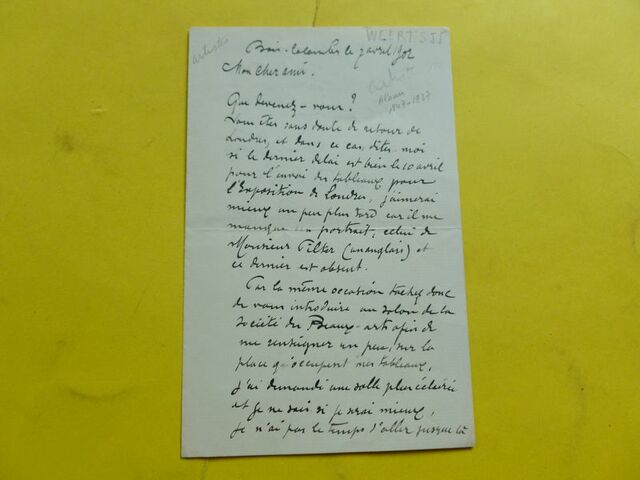 artiste
WEERTS J J
Bois-Colombes le 7 avril 1902
Mon cher ami.
artiste
1847-1927
Que devenez-vous?
Vous êtes sans doute de retour de
Londres, et dans ce cas, dites-moi
si le dernier délai est bien le 10 avril
pour l'envoi des tableaux pour
l'Exposition de Londres, j'aimerai
mieux un peu plus tard car il me
manque un portrait, celui de
Monsieur (un anglais) et
ce dernier est absent.
Par la même occasion tachez donc
de vous introduire au salon de la
Société des Beaux-arts afin de
me renseigner un peu, sur la
place qu'occupent mes tableaux,
j'ai demandé une salle plus éclairée
et je ne sais si je serai mieux,
je n'ai pas le temps d'aller jusque là